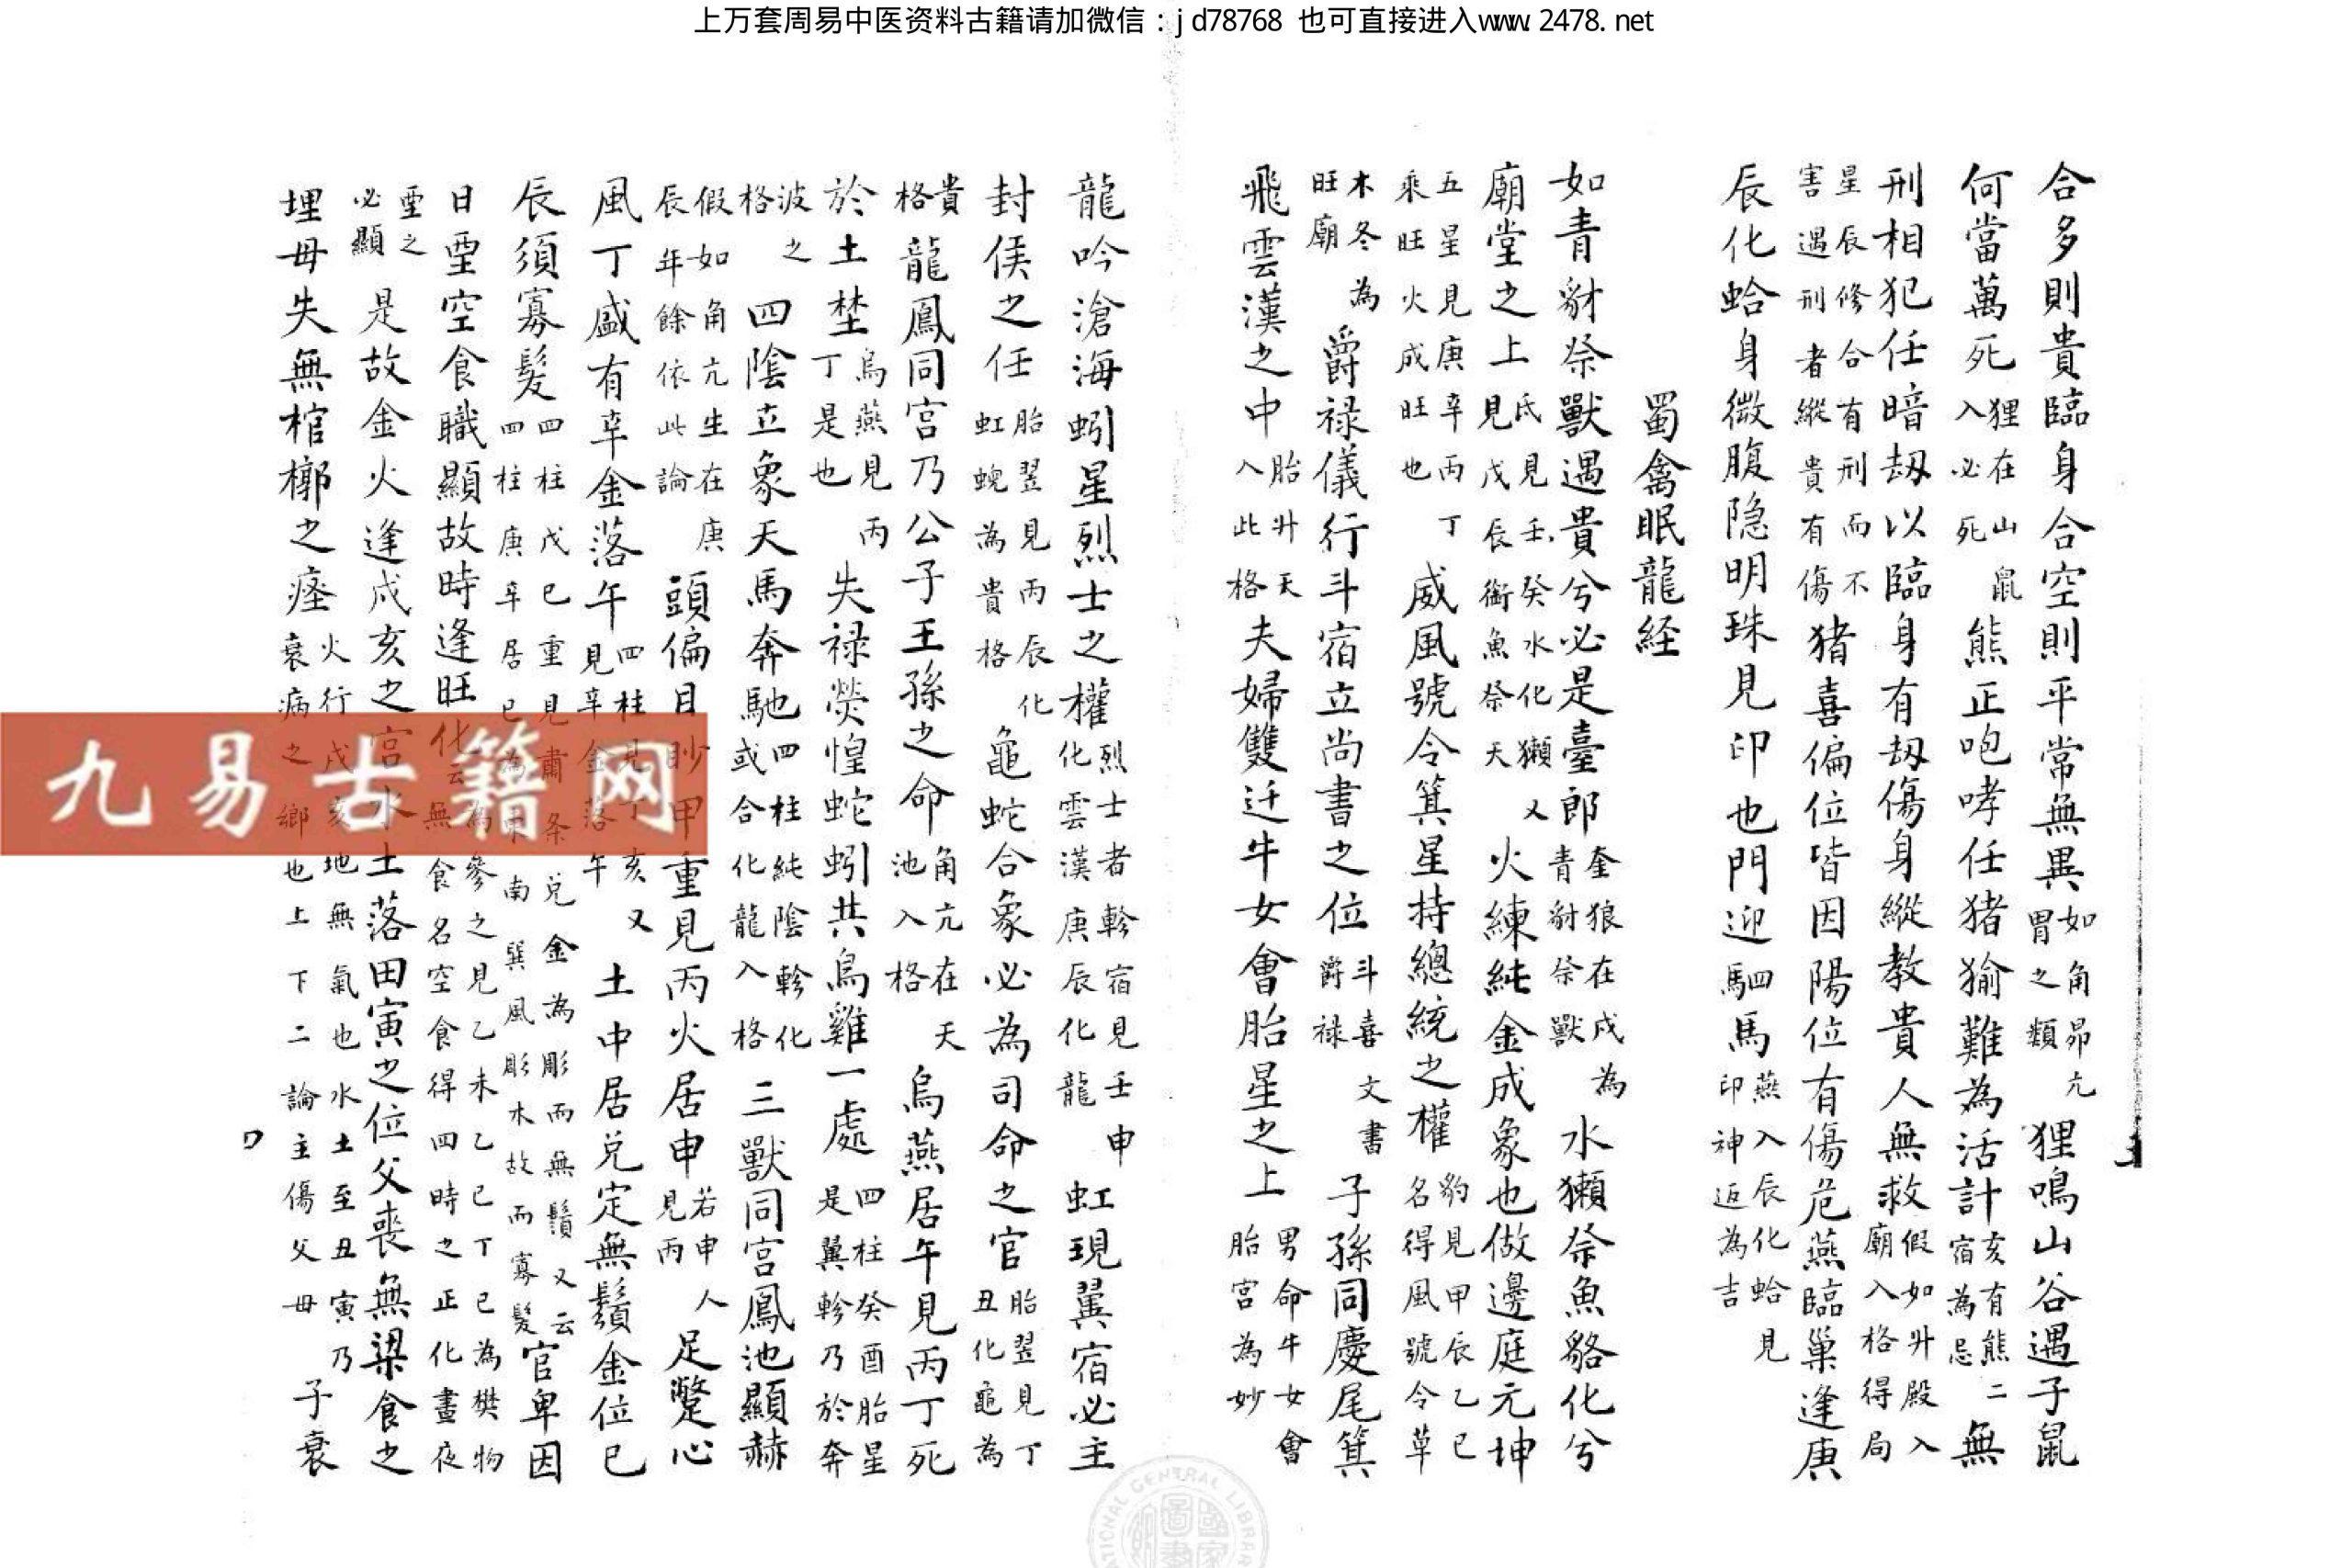 上万套周易中医资料古籍请加微信：jd78768 也可直接进入www.2478.net
合多則貴臨身合空則平常無異如角昴亢胃之類狸鳴山谷遇子鼠
何當萬死狸在山鼠入必死熊正咆哮任猪揄難為活計亥有熊二宿為忌無
刑相犯任暗刼以臨身有刼傷身縱教貴人無救假如升殿入廟入格得局
星辰修合有刑而不害遇刑者縱貴有傷猪喜偏位皆因陽位有傷危燕臨巢逢庚
辰化蛤身微腹隐明珠見印也門迎駟馬燕入辰化蛤見印神迊為吉
蜀禽眠龍経
如青豺祭獸遇貴兮必是臺郎奎狼在戌為青豺祭獸水獺祭魚貉化兮
廟堂之上氐見壬癸水化獺又見戊辰衝魚祭天火練純金成象也做邊庭元坤
五星見庚辛丙丁乘旺火成旺也威風號令箕星持總統之權豹見甲辰乙巳名得風號令草
木冬為旺廟爵禄儀行斗宿立尚書之位斗喜文書爵禄子孫同慶尾箕
飛雲漢之中胎升天入此格夫婦雙迁牛女會胎星之上男命牛女會胎宮為妙
龍吟滄海蚓星烈士之權烈士者軫宿見壬申化雲漢庚辰化龍虹現翼宿必主
封侯之任胎翌見丙辰化虹蜺為貴格龜蛇合象必為司命之官胎翌見丁丑化龜為
貴格龍鳳同宮乃公子王孫之命角亢在天池入格烏燕居午見丙丁死
於土埜烏燕見丙丁是也失禄熒惶蛇蚓共烏雞一處四柱癸酉胎星是翼軫乃於奔
波之格四陰立象天馬奔馳四柱純陰軫化或合化龍入格三獸同宮鳳池顯赫
假如角亢生在庚辰年餘依此論頭偏目眇甲重見丙火居申若申人見丙足蹩心
風丁盛有辛金落午四柱見丁亥又見辛金落午土中居兌定無鬚金位巳
辰須寡髮四柱戊己重見肅条兌金為彫而無鬚又云四柱庚辛居巳為南巽風彫木故而寡髮官卑因
日堊空食職顯故時逢旺化為參之見乙未乙巳丁巳為樊物云無食名空食得四時之正化晝夜
堊之必顯是故金火逢戌亥之宮水土落田寅之位父丧無梁食之
埋母失無棺槨之瘞火行戌亥地無氣也水土至丑寅乃衰病之鄉也上下二論主傷父母子衰
九易古籍网